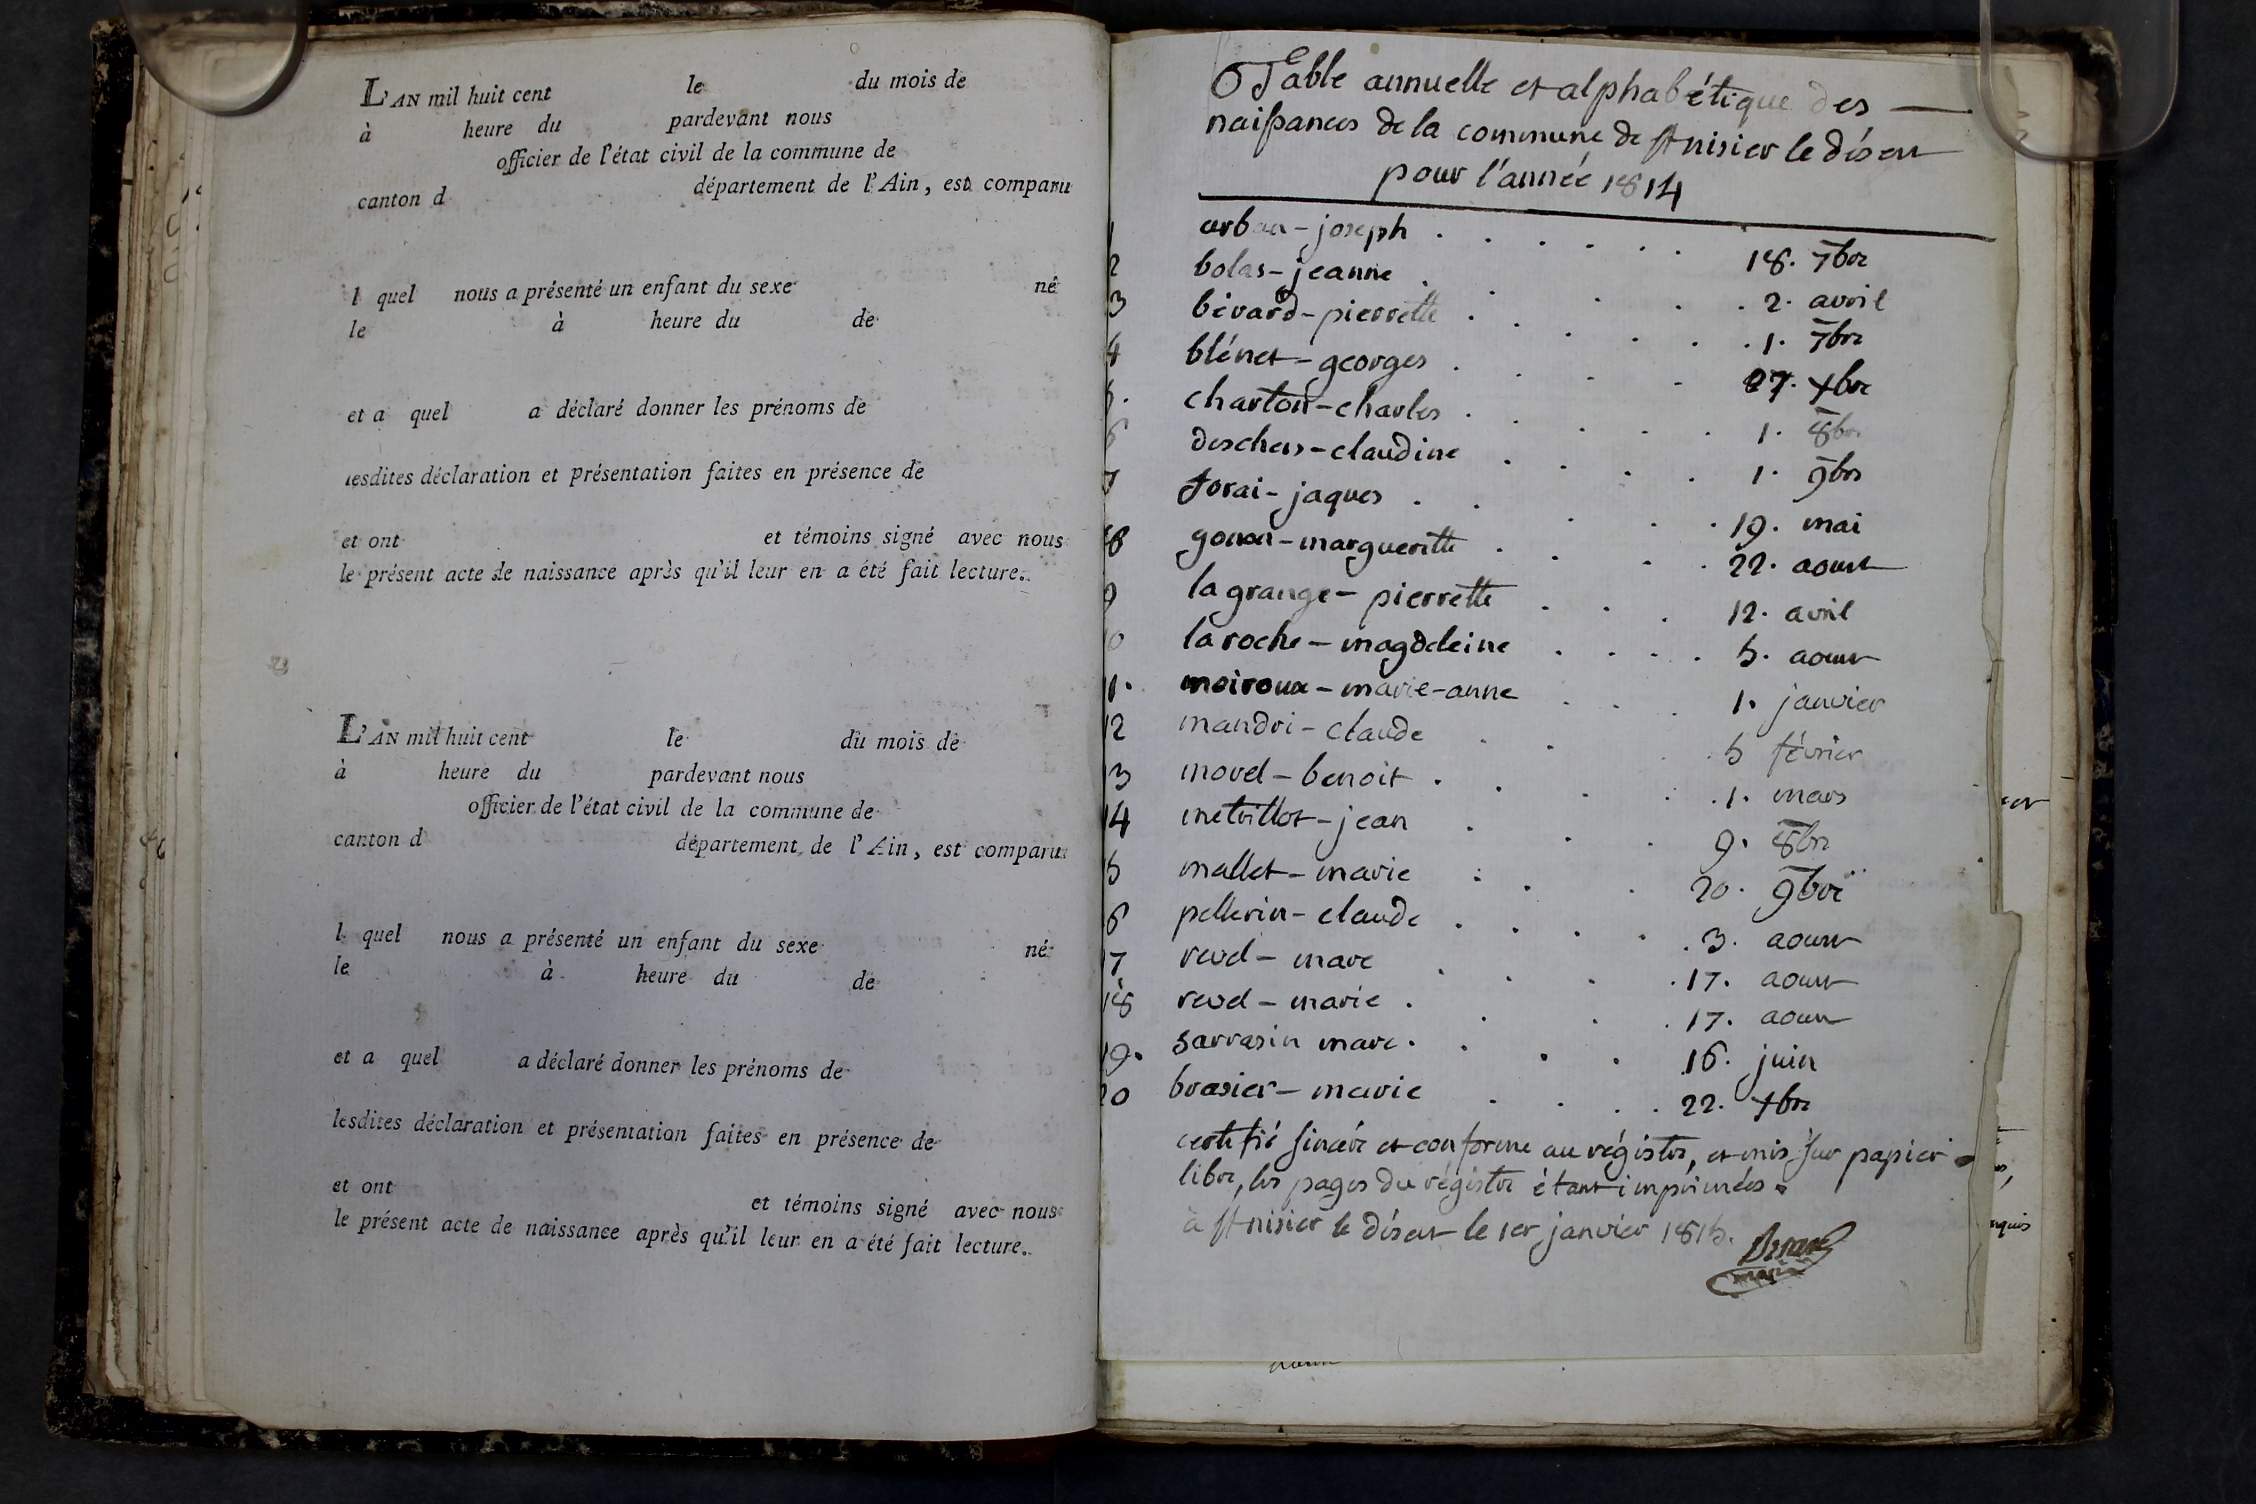 L'AN mil huit cent le du mois de
à heure du pardevant nous
officier de l'état civil de la commune de
canton d département de l'Ain, est comparu
l quel nous a présenté un enfant du sexe né
le à heure du de
et a quel a déclaré donner les prénoms de
lesdites déclaration et présentation faites en présence de
et ont et témoins signé avec nous
le présent acte de naissance après qu'il leur en a été fait lecture.
L'AN mil huit cent le du mois de
à heure du pardevant nous
officier de l'état civil de la commune de
canton d département de l'Ain, est comparu
l quel nous a présenté un enfant du sexe né
le à heure du de
et a quel a déclaré donner les prénoms de
lesdites déclaration et présentation faites en présence de
et ont et témoins signé avec nous
le présent acte de naissance après qu'il leur en a été fait lecture.
Table annuelle et alphabétique des
naissances de la commune de St nisier le désert
pour l'année 1814
1 joseph 18. 7bre
2 bolas-jeanne 2. avril
3 bévard-pierrette 1. 7bre
4 blénet-georges 27. xbre
5. charton-charles 1. 8bre
6 deschers-claudine 1. 9bre
7 forai-jaques 19. mai
8 gonon-margueritte 22. aoust
9 lagrange-pierrette 12. avril
10 laroche-magdeleine 5. aoust
11. moiroux-marie-anne 1. janvier
12 mandri-claude 5 février
13 morel-benoit 1. mars
14 jean 9. 8bre
15 mallet-marie 20. 9bre
16 pellerin-claude 3. aoust
17 revel-marc 17. aoust
18 revel-marie 17. aoust
19. sarrasin marc 16. juin
20 brasier-marie 22. xbre
certifié sincère et conforme au régistre, et mis sur papier
libre, les pages du régistre étant imprimées.
à St nisier le désert le 1er janvier 1815.